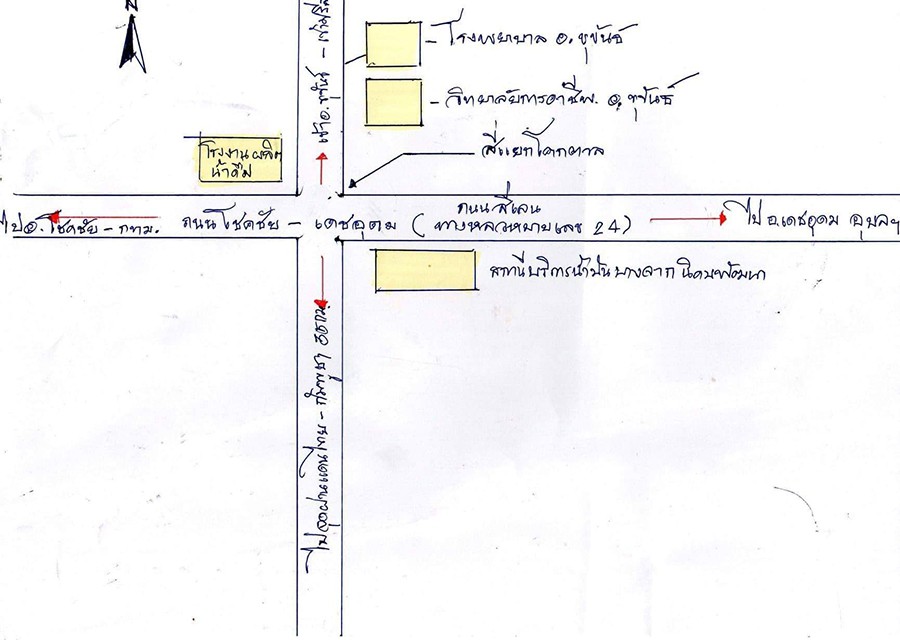 N
- โรงพยาบาล อ.ขุขันธ์
- วิทยาลัยการอาชีพ. อ.ขุขันธ์
เข้าอ.ขุขันธ์ -
สี่แยกโคกตาล
โรงงานผลิต
น้ำดื่ม
ถนนสี่เลน
ไปอ.โชคชัย - กทม.
ถนนโชคชัย - เดชอุดม (ทางหลวงหมายเลข 24)
ไป อ.เดชอุดม อุบลฯ
สถานีบริการน้ำมันบางจาก นิคมพัฒนา
ไปจุดผ่านแดนไทย - กัมพูชา